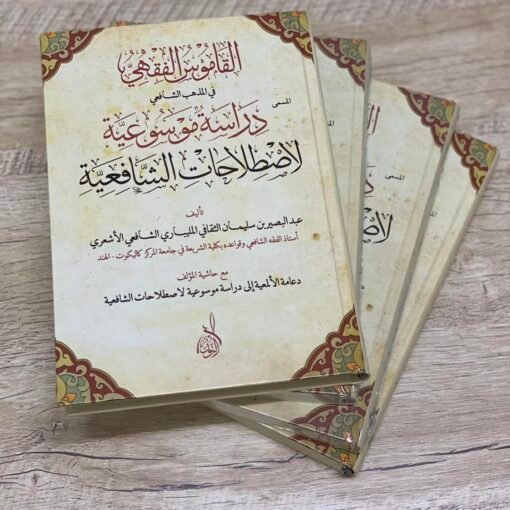 القاموس الفقهي
في المذهب الشافعي
المسمى
دراسة موسوعية
لاصطلاحات الشافعية
تأليف
عبد البصير بن سليمان الثقافي المليباري الشافعي الأشعري
أستاذ الفقه الشافعي وقواعده بكلية الشريعة في جامعة المركز كاليكوت - الهند
مع حاشية المؤلف
دعامة الألمعية إلى دراسة موسوعية لاصطلاحات الشافعية
المسمى